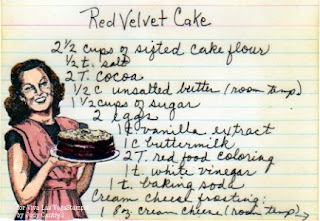 Red Velvet Cake
2 1/2 cups of sifted cake flour
1/2 t. salt
2 T. cocoa
1/2 c unsalted butter (room temp)
1 1/2 cups of sugar
2 eggs
1 t vanilla extract
1 C buttermilk
2 T. red food coloring
1 t. white vinegar
1 t. baking soda
Cream cheese frosting:
1 8oz. cream cheese (room temp) →
for Viva Las VegaStamps
by